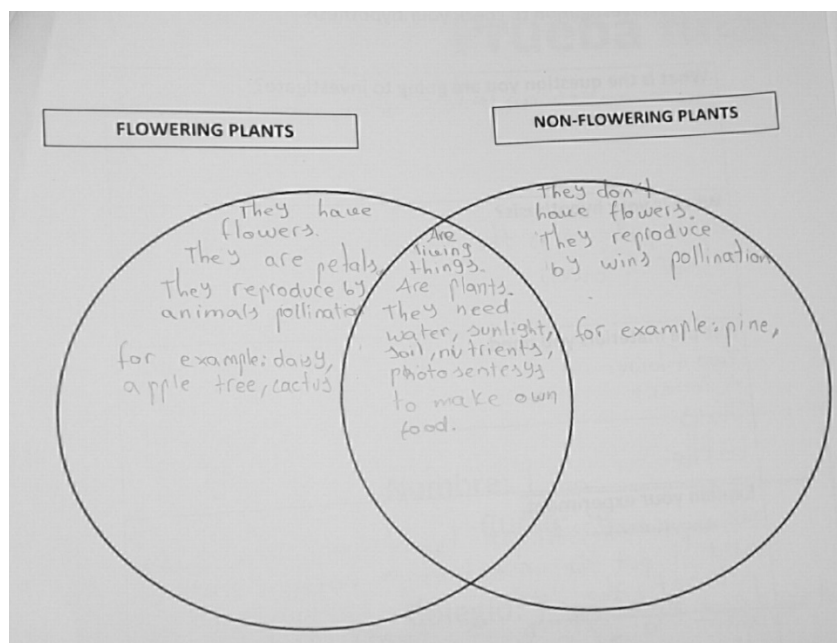 FLOWERING PLANTS
NON-FLOWERING PLANTS
They have
flowers.
They are petals.
They reproduce by
animals pollination
for example: daisy,
apple tree, cactus
Are
living
things.
Are plants.
They need
water, sunlight,
soil, nutrients,
photosentesys
to make own
food.
They don't
have flowers.
They reproduce
by wins pollination
for example: pine,